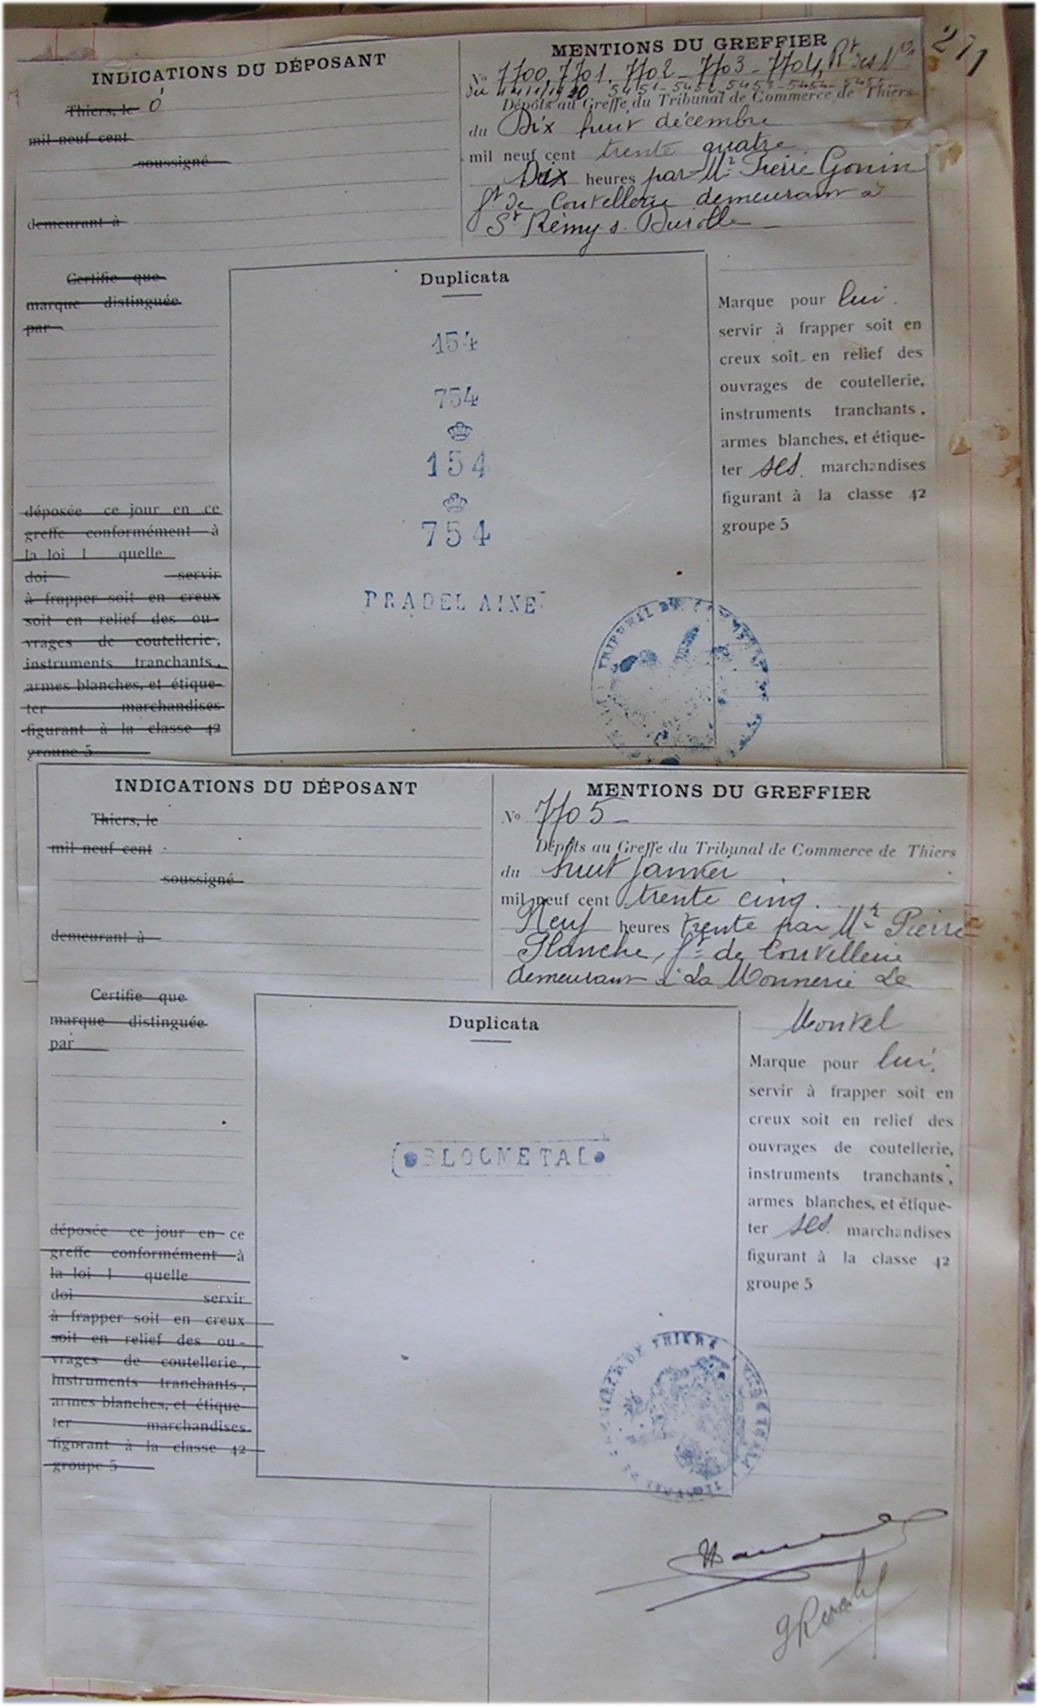 271
INDICATIONS DU DÉPOSANT
Thiers, le
mil neuf cent
soussigné
demeurant à
MENTIONS DU GREFFIER
No 7700, 7701, 7702 - 7703 - 7704, Rt des Nos
du 1930 5451 - 5452 - 5453 - 5454 - 5455
Dépôts au Greffe du Tribunal de Commerce de Thiers
du Dix huit décembre
mil neuf cent trente quatre
Dix heures par Mr Pierre Gonin
ft de Coutellerie demeurant à
St Rémy s. Durolle
Certifie que
marque distinguée
par
déposée ce jour en ce
greffe conformément à
la loi l quelle
doi servir
à frapper soit en creux
soit en relief des ou-
vrages de coutellerie,
instruments tranchants,
armes blanches, et étique-
ter marchandises
figurant à la classe 42
groupe 5
Duplicata
154
754
154
754
PRADEL AINE
Marque pour lui
servir à frapper soit en
creux soit en relief des
ouvrages de coutellerie,
instruments tranchants,
armes blanches, et étique-
ter ses marchandises
figurant à la classe 42
groupe 5
INDICATIONS DU DÉPOSANT
Thiers, le
mil neuf cent
soussigné
demeurant à
MENTIONS DU GREFFIER
No 7705 -
Dépôts au Greffe du Tribunal de Commerce de Thiers
du huit Janvier
mil neuf cent trente cinq
Neuf heures trente par Mr Pierre
Planche, ft de Coutellerie
demeurant à La Monnerie Le
Montel
Certifie que
marque distinguée
par
déposée ce jour en ce
greffe conformément à
la loi l quelle
doi servir
à frapper soit en creux
soit en relief des ou-
vrages de coutellerie,
instruments tranchants,
armes blanches, et étique-
ter marchandises
figurant à la classe 42
groupe 5
Duplicata
BLOCMETAL
Marque pour lui
servir à frapper soit en
creux soit en relief des
ouvrages de coutellerie,
instruments tranchants,
armes blanches, et étique-
ter ses marchandises
figurant à la classe 42
groupe 5